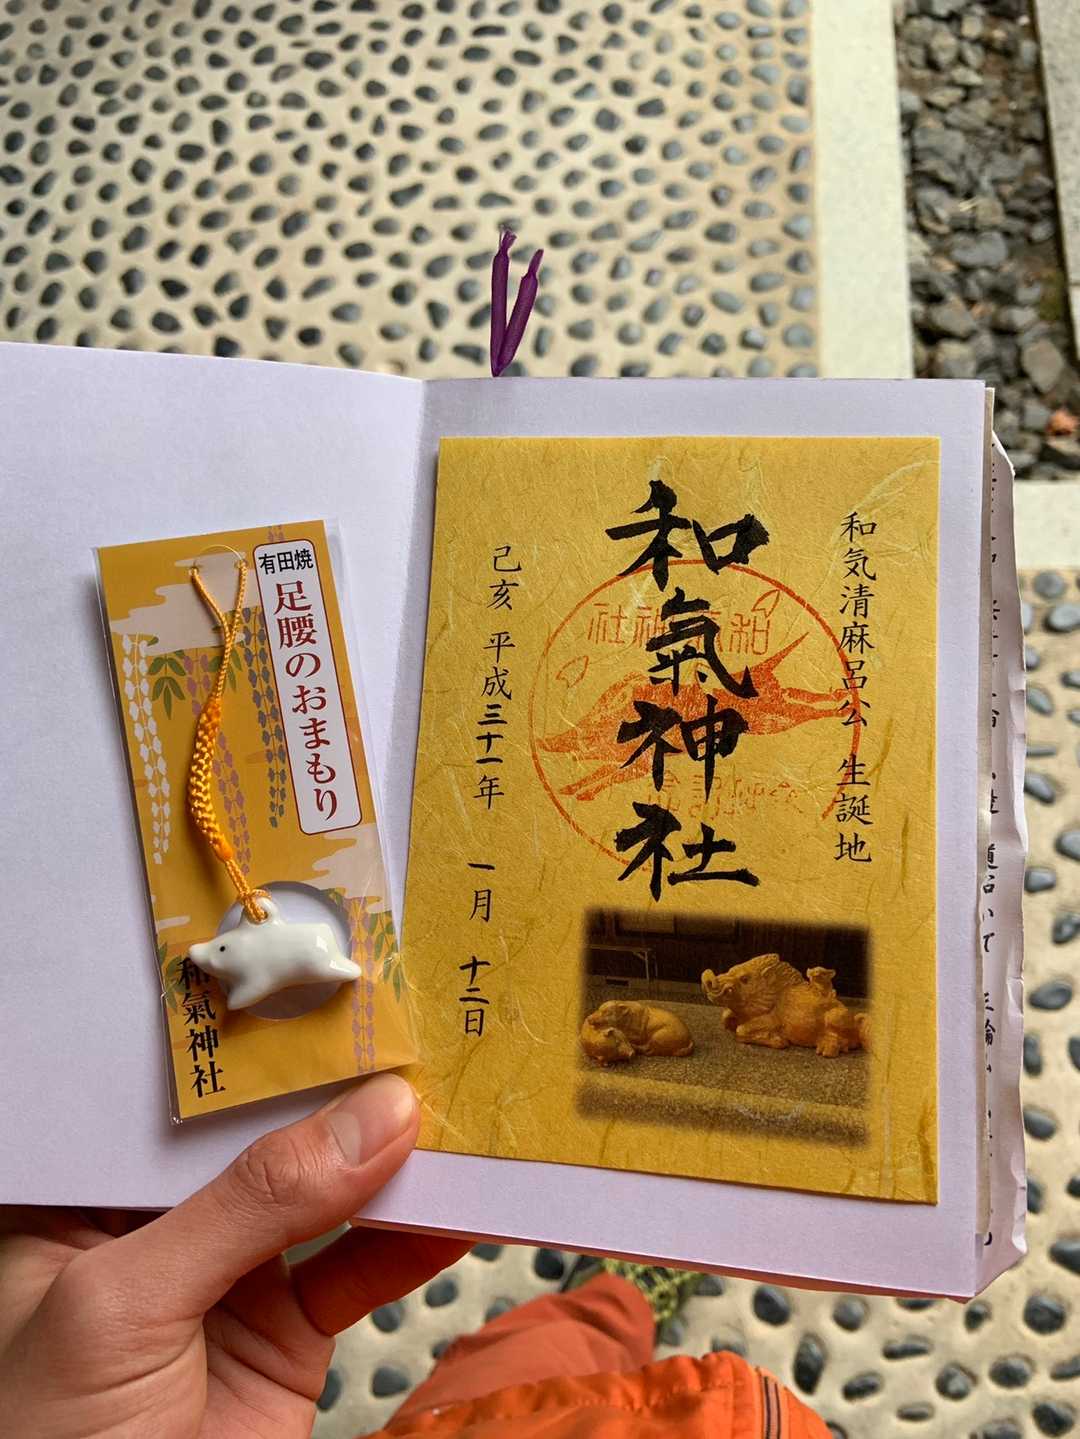 有田焼
足腰のおまもり
和氣神社
和気清麻呂公 生誕地
和氣神社
和氣神社
己亥 平成三十一年 一月 十二日